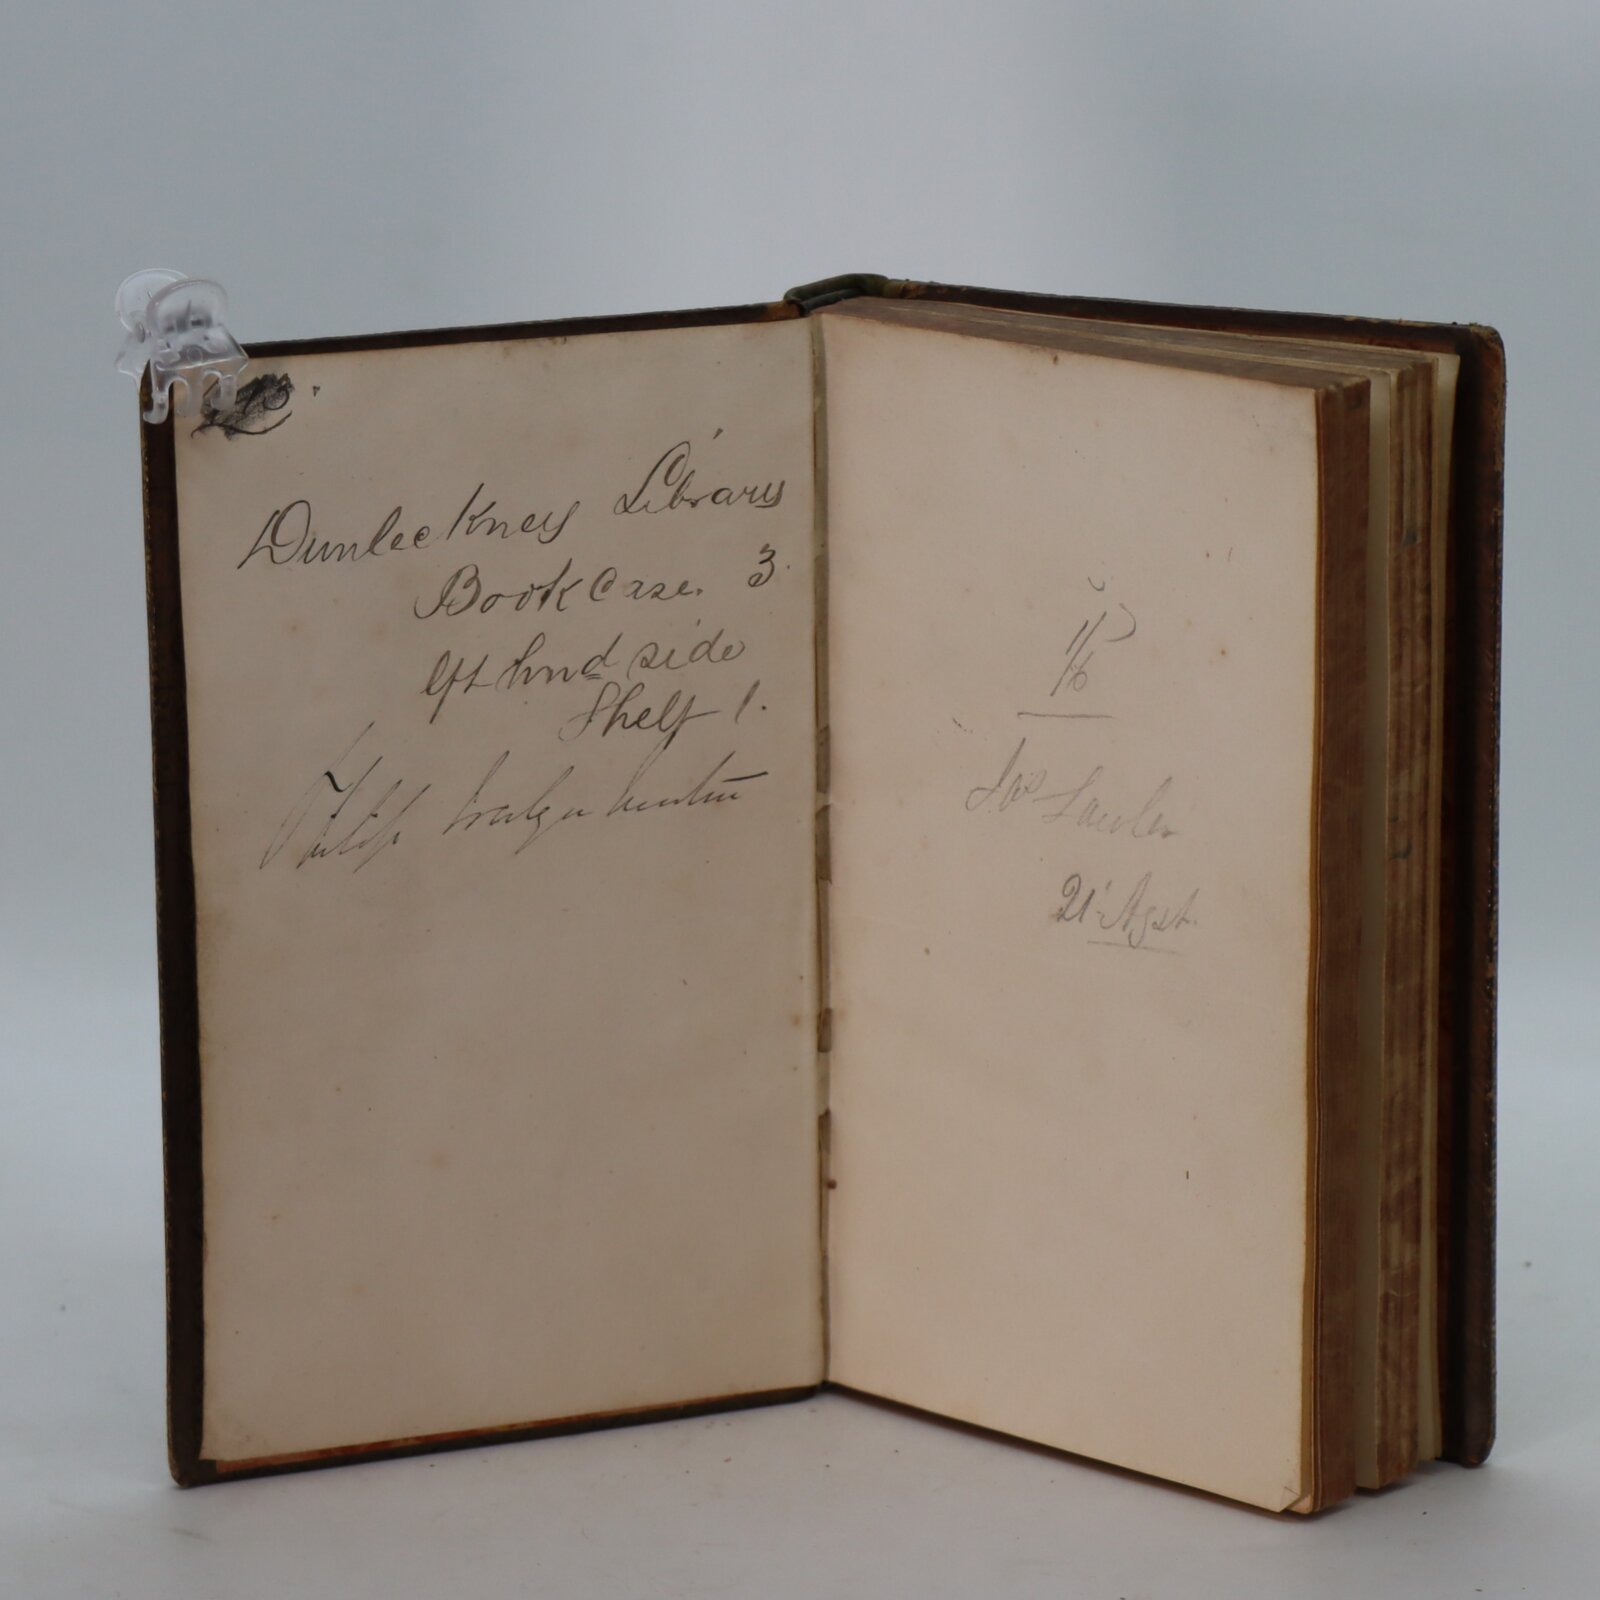 Dunleckney Library
Bookcase. 3.
lft hnd side
Shelf 1.
Philip
1/6
Jas Lawler
21st Agst.